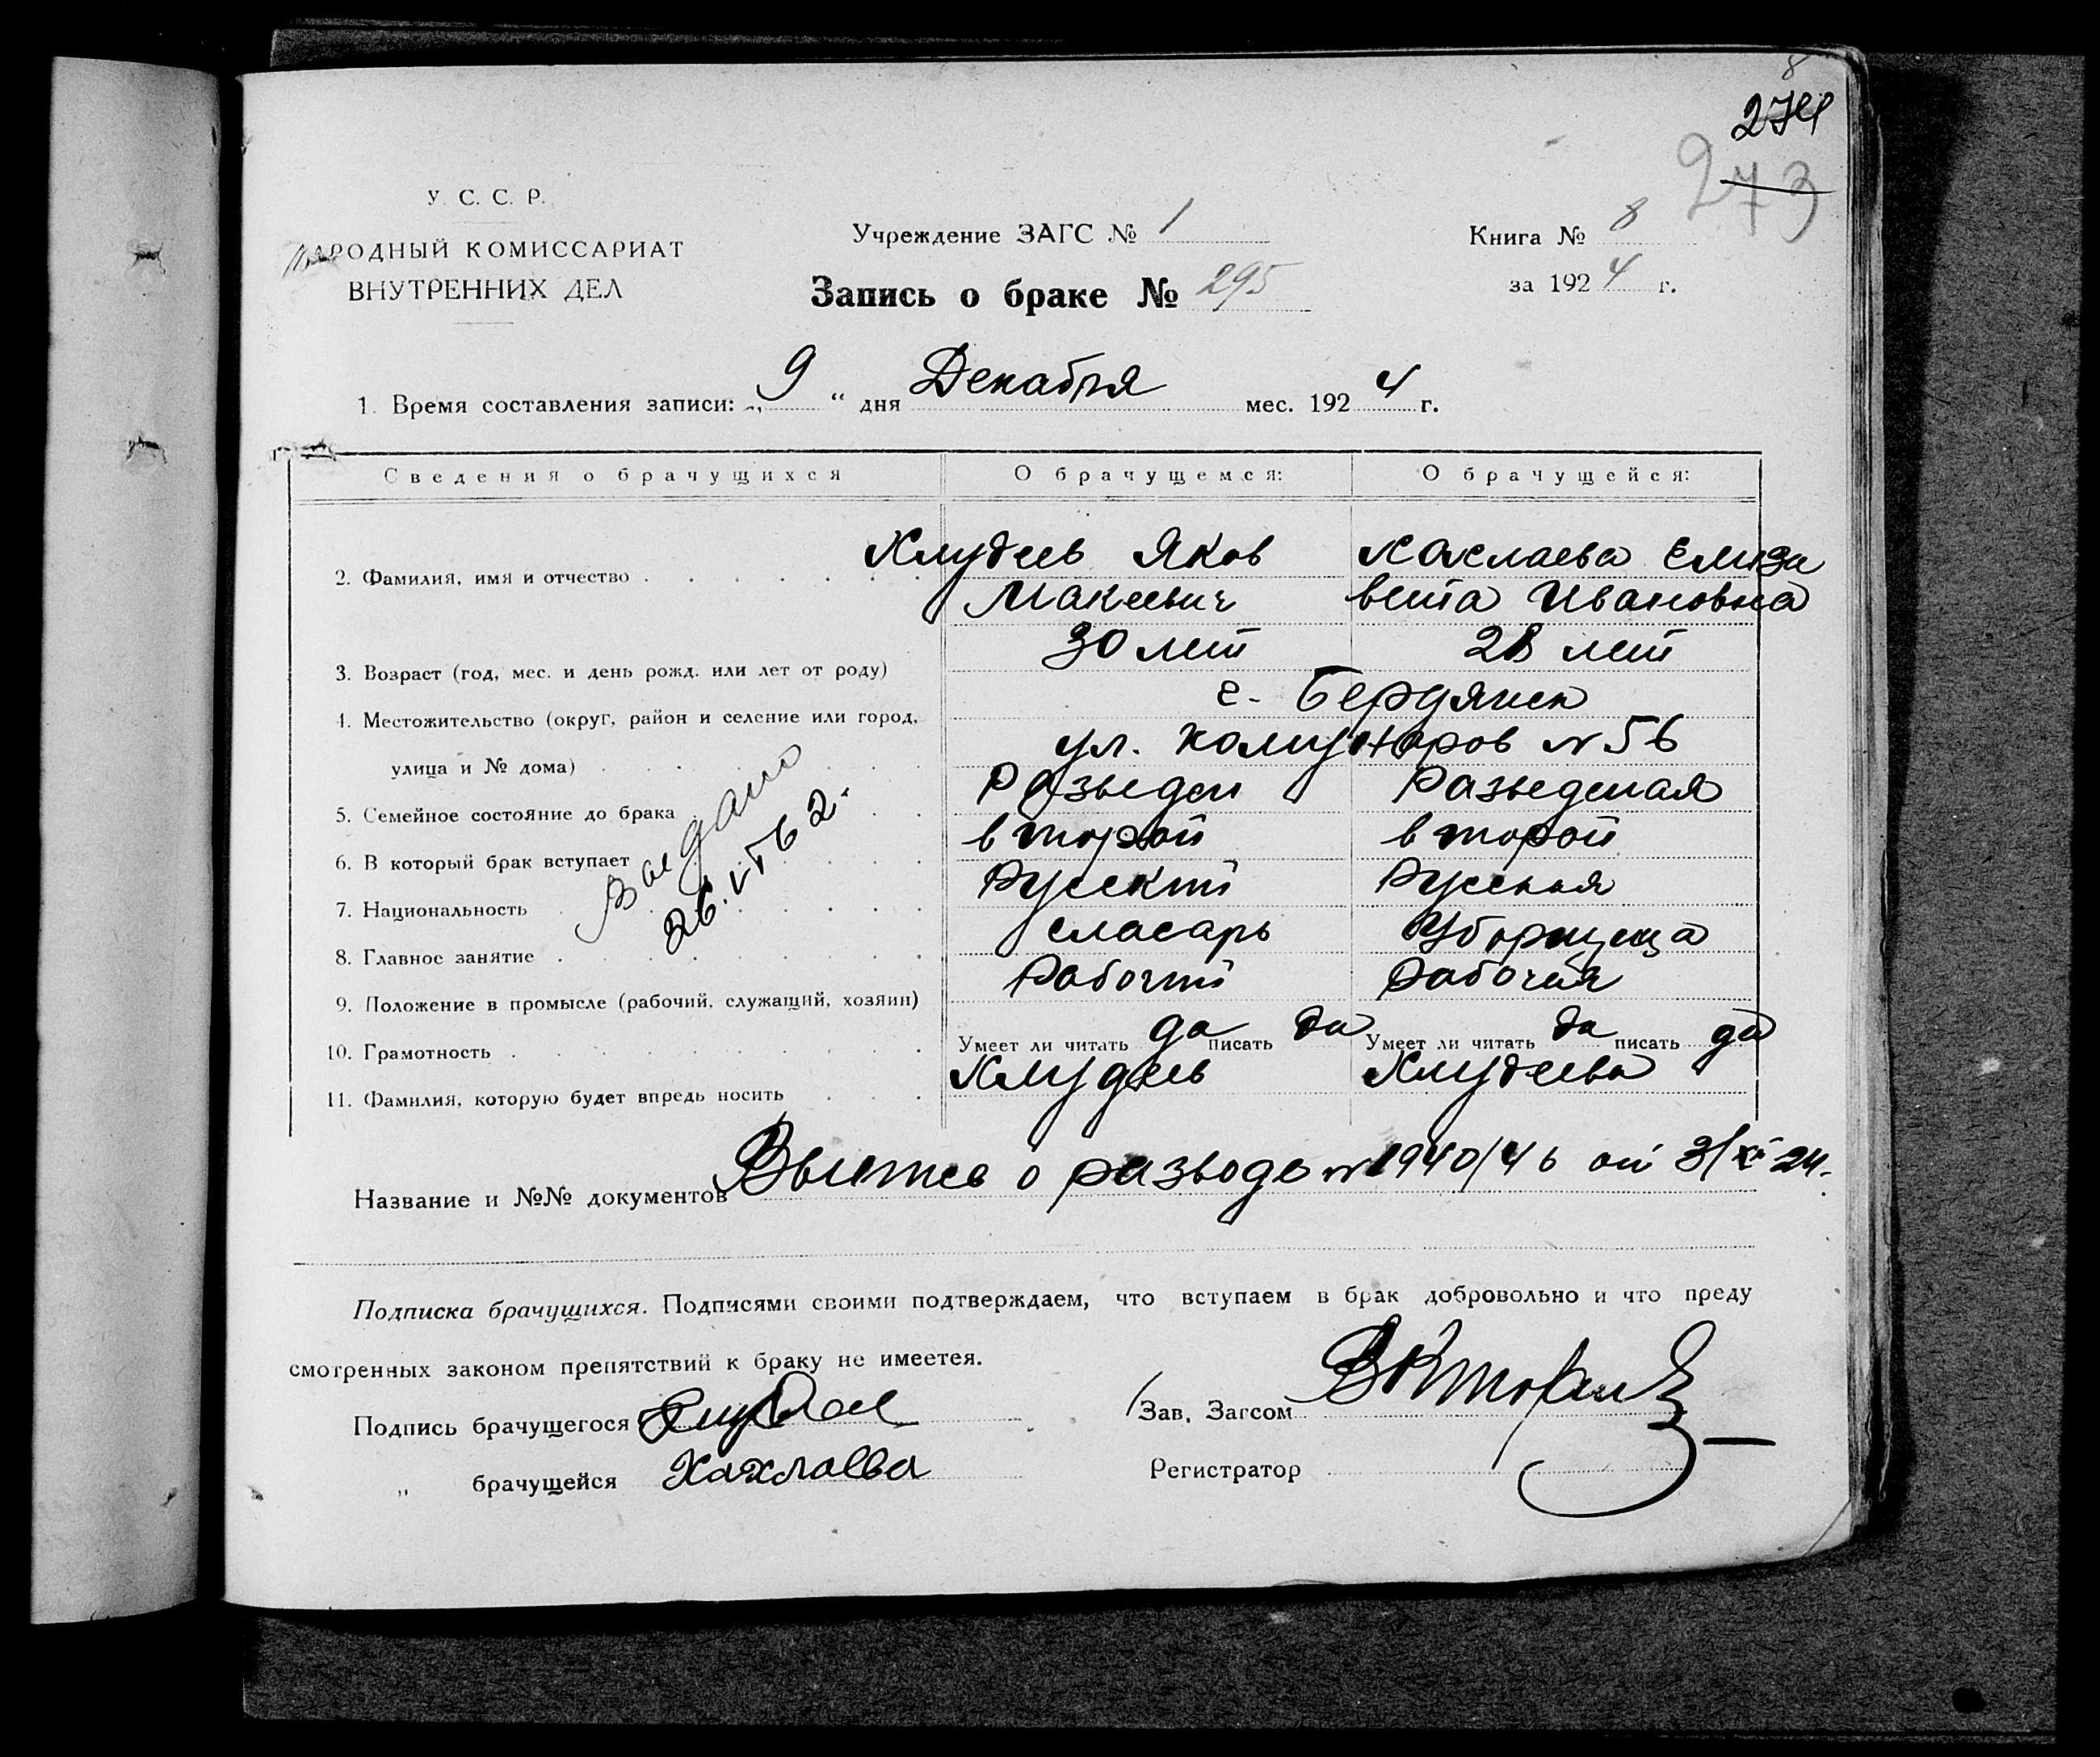 8
274
273
У. С. С. Р.
НАРОДНЫЙ КОМИССАРИАТ
ВНУТРЕННИХ ДЕЛ
Учреждение ЗАГС № 1
Книга № 8
Запись о браке № 295
за 1924 г.
1. Время составления записи: „ 9 “ дня Декабря мес. 1924 г.
Сведения о брачущихся О брачущемся: О брачущейся:
2. Фамилия, имя и отчество Хлудеев Яков Хахлаева Елиза
Макеевич вета Ивановна
3. Возраст (год, мес. и день рожд. или лет от роду) 30 лет 28 лет
4. Местожительство (округ, район и селение или город, г. Бердянск
улица и № дома) ул. Комунаров № 56
5. Семейное состояние до брака Разведен Разведеная
6. В который брак вступает второй второй
7. Национальность Русский Русская
8. Главное занятие сласарь Уборщица
9. Положение в промысле (рабочий, служащий, хозяин) Рабочий Рабочая
10. Грамотность Умеет ли читать да писать да Умеет ли читать да писать да
11. Фамилия, которую будет впредь носить Хлудеев Хлудеева
Выдано
26.VI 62.
Название и №№ документов о разводе № 1940/46 от 3/XI-24.
Подписка брачущихся. Подписями своими подтверждаем, что вступаем в брак добровольно и что преду
смотренных законом препятствий к браку не имеетея.
Подпись брачущегося
Зав. Загсом
„ брачущейся Хахлаева
Регистратор